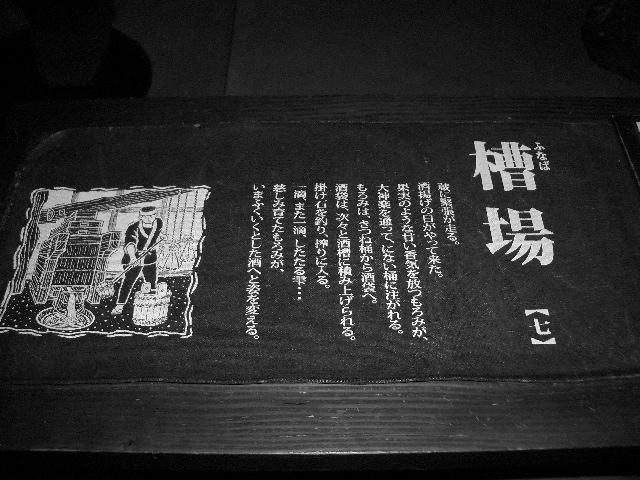 ふなば
槽場
【七】
蔵に緊張が走る。
酒揚げの日がやって来た。
果実のような甘い香気を放つもろみが、
大沖庭を通って、にない桶に注がれる。
もろみは、きつね桶から酒袋へ。
酒袋は、次々と酒槽に積み上げられる。
掛け石を釣り、搾りに入る。
一滴、また一滴、したたる雫…
慈しみ育てたもろみが、
いま、ふくいくとした酒へと姿を変える。